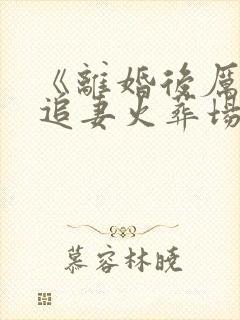 《離婚後厲
追妻火葬場
慕容林曉